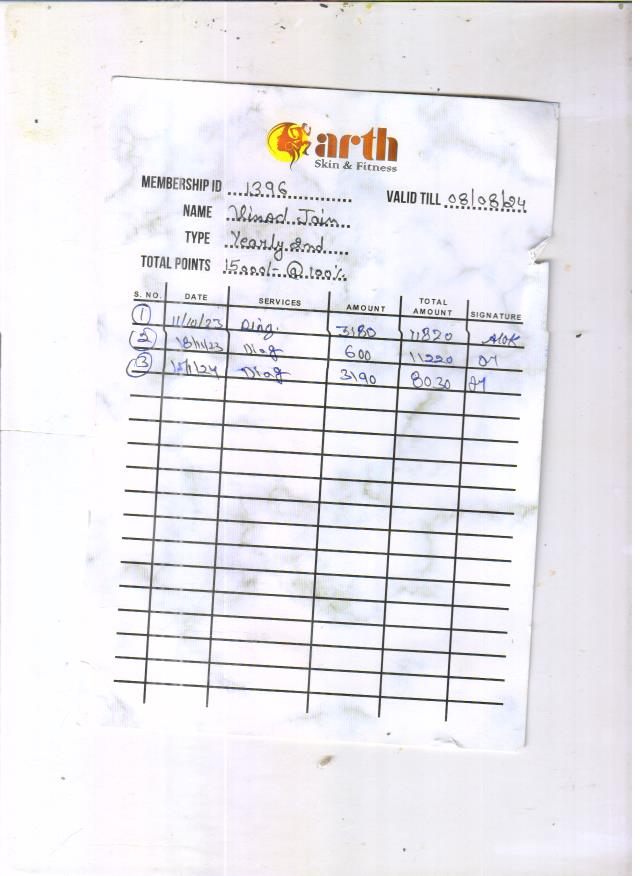 arth
Skin & Fitness
MEMBERSHIP ID 1396
VALID TILL 08/08/24
NAME Vinod Jain
TYPE Yearly 2nd
TOTAL POINTS 15000/- @ 100%
S. NO. DATE SERVICES AMOUNT TOTAL AMOUNT SIGNATURE
1 11/10/23 Diag. 3180 11820 Alok
2 18/11/23 Diag 600 11220
3 15/1/24 Diag 3190 8030